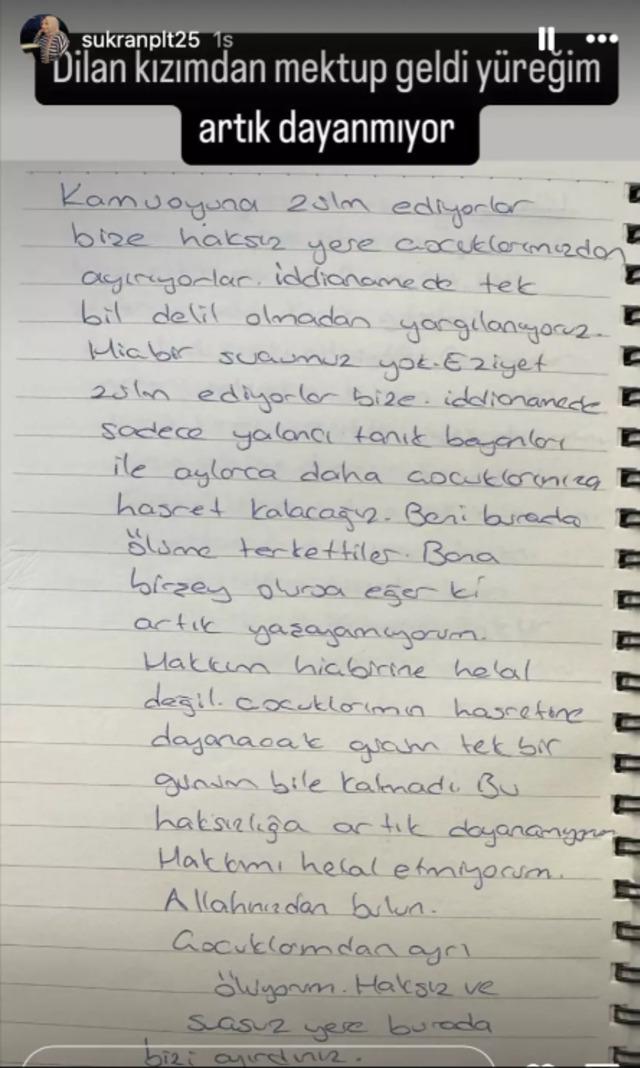 sukranplt25 1s
Dilan kızımdan mektup geldi yüreğim
artık dayanmıyor
Kamuoyuna zulm ediyorlar
bize haksız yere çocuklarımızdan
ayırıyorlar. iddianamede tek
bil delil olmadan yargılanıyoruz.
Hiçbir suçumuz yok. Eziyet
zulm ediyorlar bize. iddianamede
sadece yalancı tanık beyanları
ile aylarca daha çocuklarımıza
hasret kalacağız. Beni burada
ölüme terkettiler. Bana
birşey olursa eğer ki
artık yaşayamıyorum.
Hakkım hiçbirine helal
değil. Çocuklarımın hasretine
dayanacak gram tek bir
günüm bile kalmadı. Bu
haksızlığa artık dayanamıyorum
Hakkımı helal etmiyorum.
Allahınızdan bulun.
Çocuklarımdan ayrı
ölüyorum. Haksız ve
suçsuz yere burada
bizi ayırdınız.